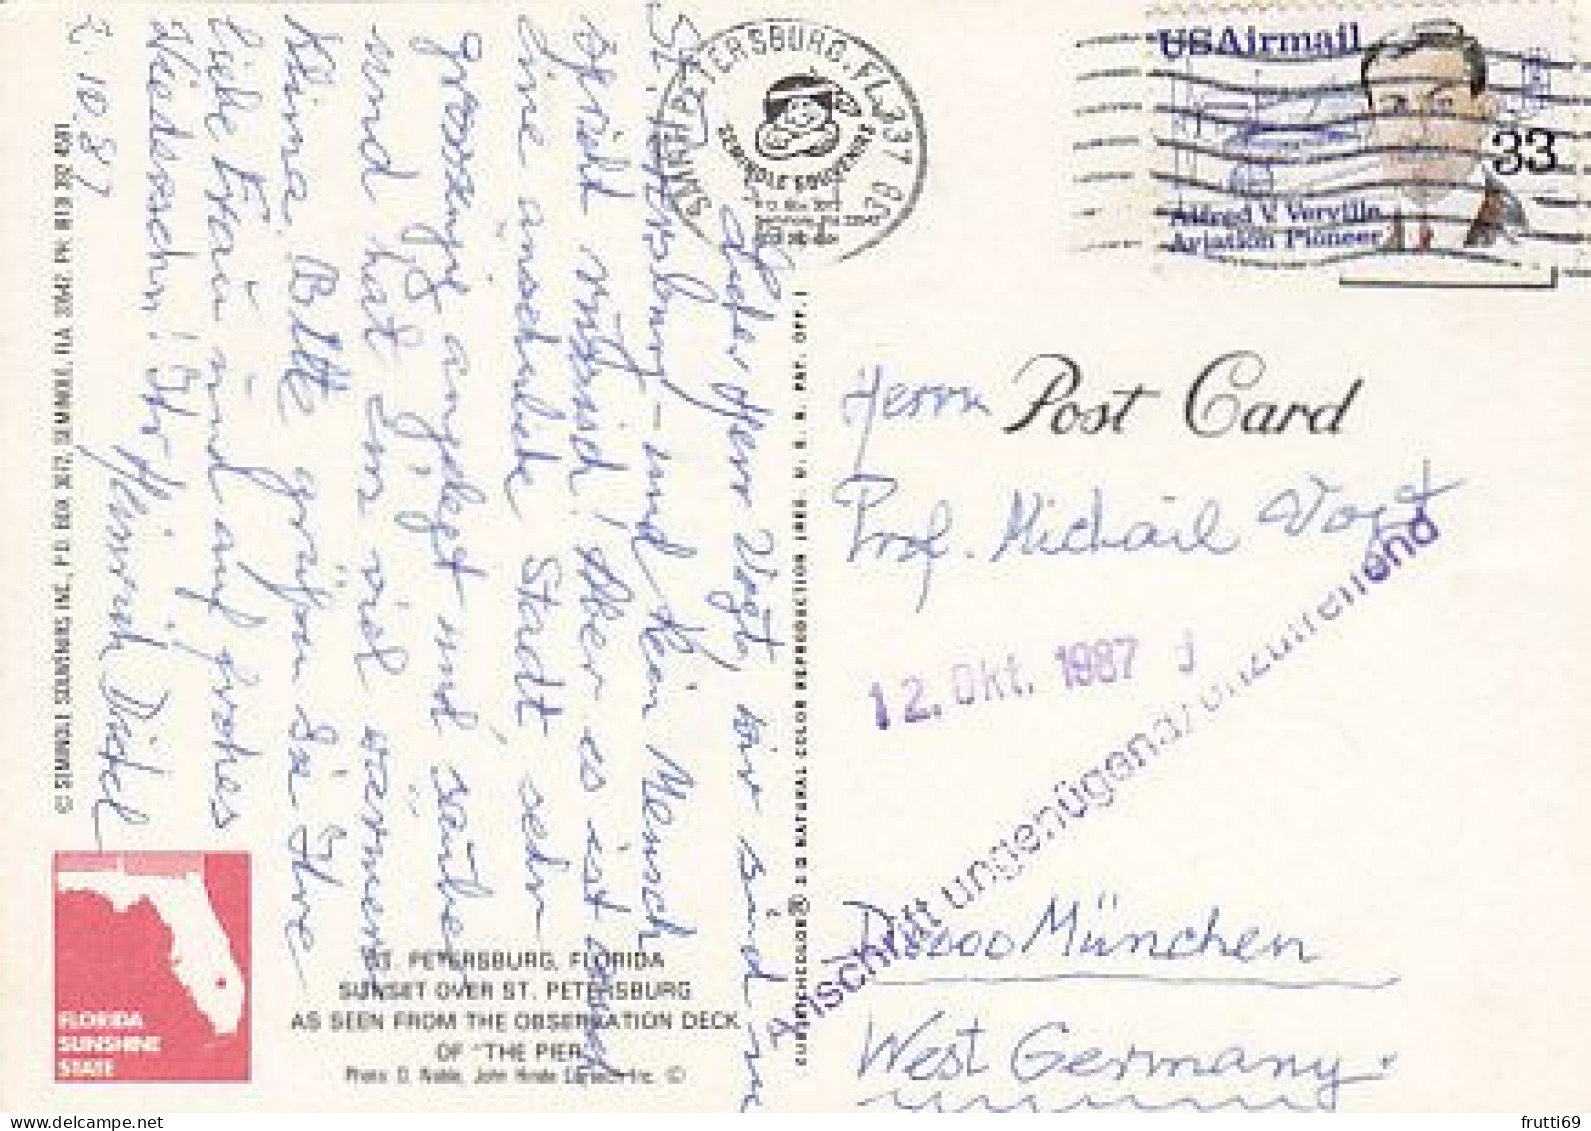 Lieber Herr Vogt, wir sind in
St. Petersburg - und kein Mensch
spricht russisch! Aber es ist
eine amerik. Stadt sehr
grosszügig angelegt und sauber
und hat ein viel wärmeres
Klima. Bitte grüssen Sie Ihre
liebe Frau und auf frohes
Wiedersehn! Ihr Heinrich
2. 10. 87
© SEMINOLE SOUVENIRS INC., P.O. BOX 3072, SEMINOLE, FLA. 33542. PH. 813 392 4591
FLORIDA
SUNSHINE
STATE
ST. PETERSBURG, FLORIDA
SUNSET OVER ST. PETERSBURG
AS SEEN FROM THE OBSERVATION DECK
OF "THE PIER"
NATURAL COLOR REPRODUCTION (REG. U. S. A. PAT. OFF.)
SEMINOLE SOUVENIRS
ST. PETERSBURG, FL 337
USAirmail
33
Alfred V. Verville
Aviation Pioneer
Post Card
Herrn
Prof. Michail Vogt
12. Okt. 1987
Anschrift ungenügend/unzutreffend
München
West Germany
frutti69
www.delcampe.net